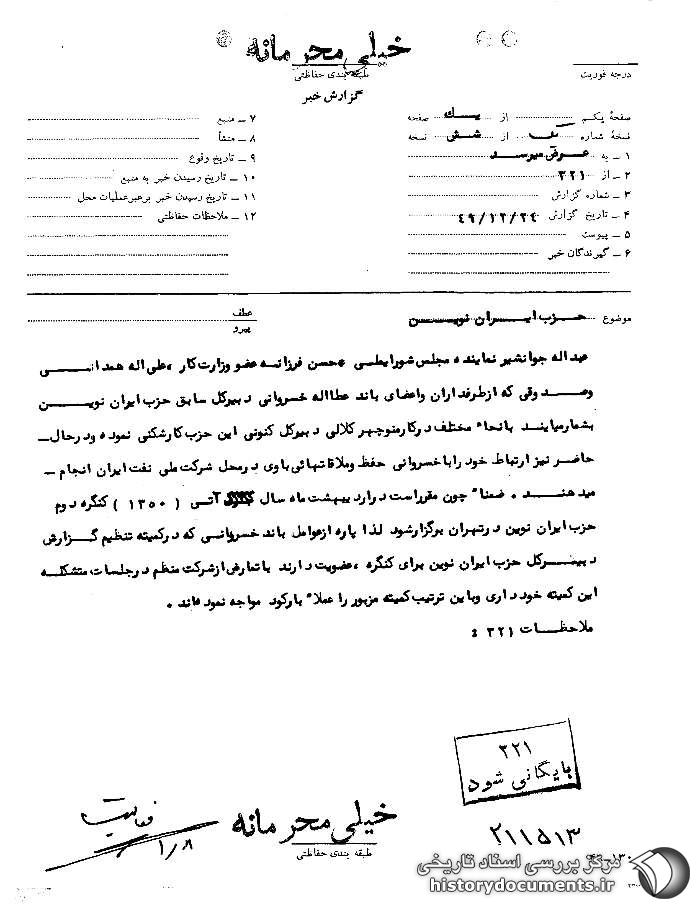 خیلی محرمانه
طبقه بندی حفاظتی
درجه فوریت
گزارش خبر
صفحهٔ یکم از یک صفحه
نسخهٔ شماره یک از شش نسخه
۱ ــ به عرض میرسد
۲ ــ از ۳۲۱
۳ ــ شماره گزارش
۴ ــ تاریخ گزارش ۴۹/۱۲/۲۴
۵ ــ پیوست
۶ ــ گیرندگان خبر
۷ ــ منبع
۸ ــ منشأ
۹ ــ تاریخ وقوع
۱۰ ــ تاریخ رسیدن خبر به منبع
۱۱ ــ تاریخ رسیدن خبر برهبر عملیات محل
۱۲ ــ ملاحظات حفاظتی
موضوع حزب ایران نوین
عطف
پیرو
عبداله جوانشیر نماینده مجلس شورایملی ، حسن فرزانه عضو وزارت کار ، علی اله همدانی
وصدوقی که ازطرفداران واعضای باند عطااله خسروانی دبیرکل سابق حزب ایران نوین
بشمارمیایند بانحاء مختلف درکارمنوچهر کلالی دبیرکل کنونی این حزب کارشکنی نموده ودرحال
حاضر نیز ارتباط خود رابا خسروانی حفظ وملاقاتهائی باوی درمحل شرکت ملی نفت ایران انجام
میدهند . ضمناً چون مقرراست دراردیبهشت ماه سال آتی ( ۱۳۵۰ ) کنگره دوم
حزب ایران نوین درتهران برگزارشود لذا پاره ازعوامل باند خسروانی که درکمیته تنظیم گزارش
دبیرکل حزب ایران نوین برای کنگره ، عضویت دارند باتعارض ازشرکت منظم درجلسات متشکله
این کمیته خودداری وباین ترتیب کمیته مزبور را عملاً بارکود مواجه نموده‌اند .
ملاحظات ۳۲۱ :
۳۲۱
بایگانی شود
خیلی محرمانه
طبقه بندی حفاظتی
۱/۸
۲۱۱۵۱۳
مرکز بررسی اسناد تاریخی
historydocuments.ir